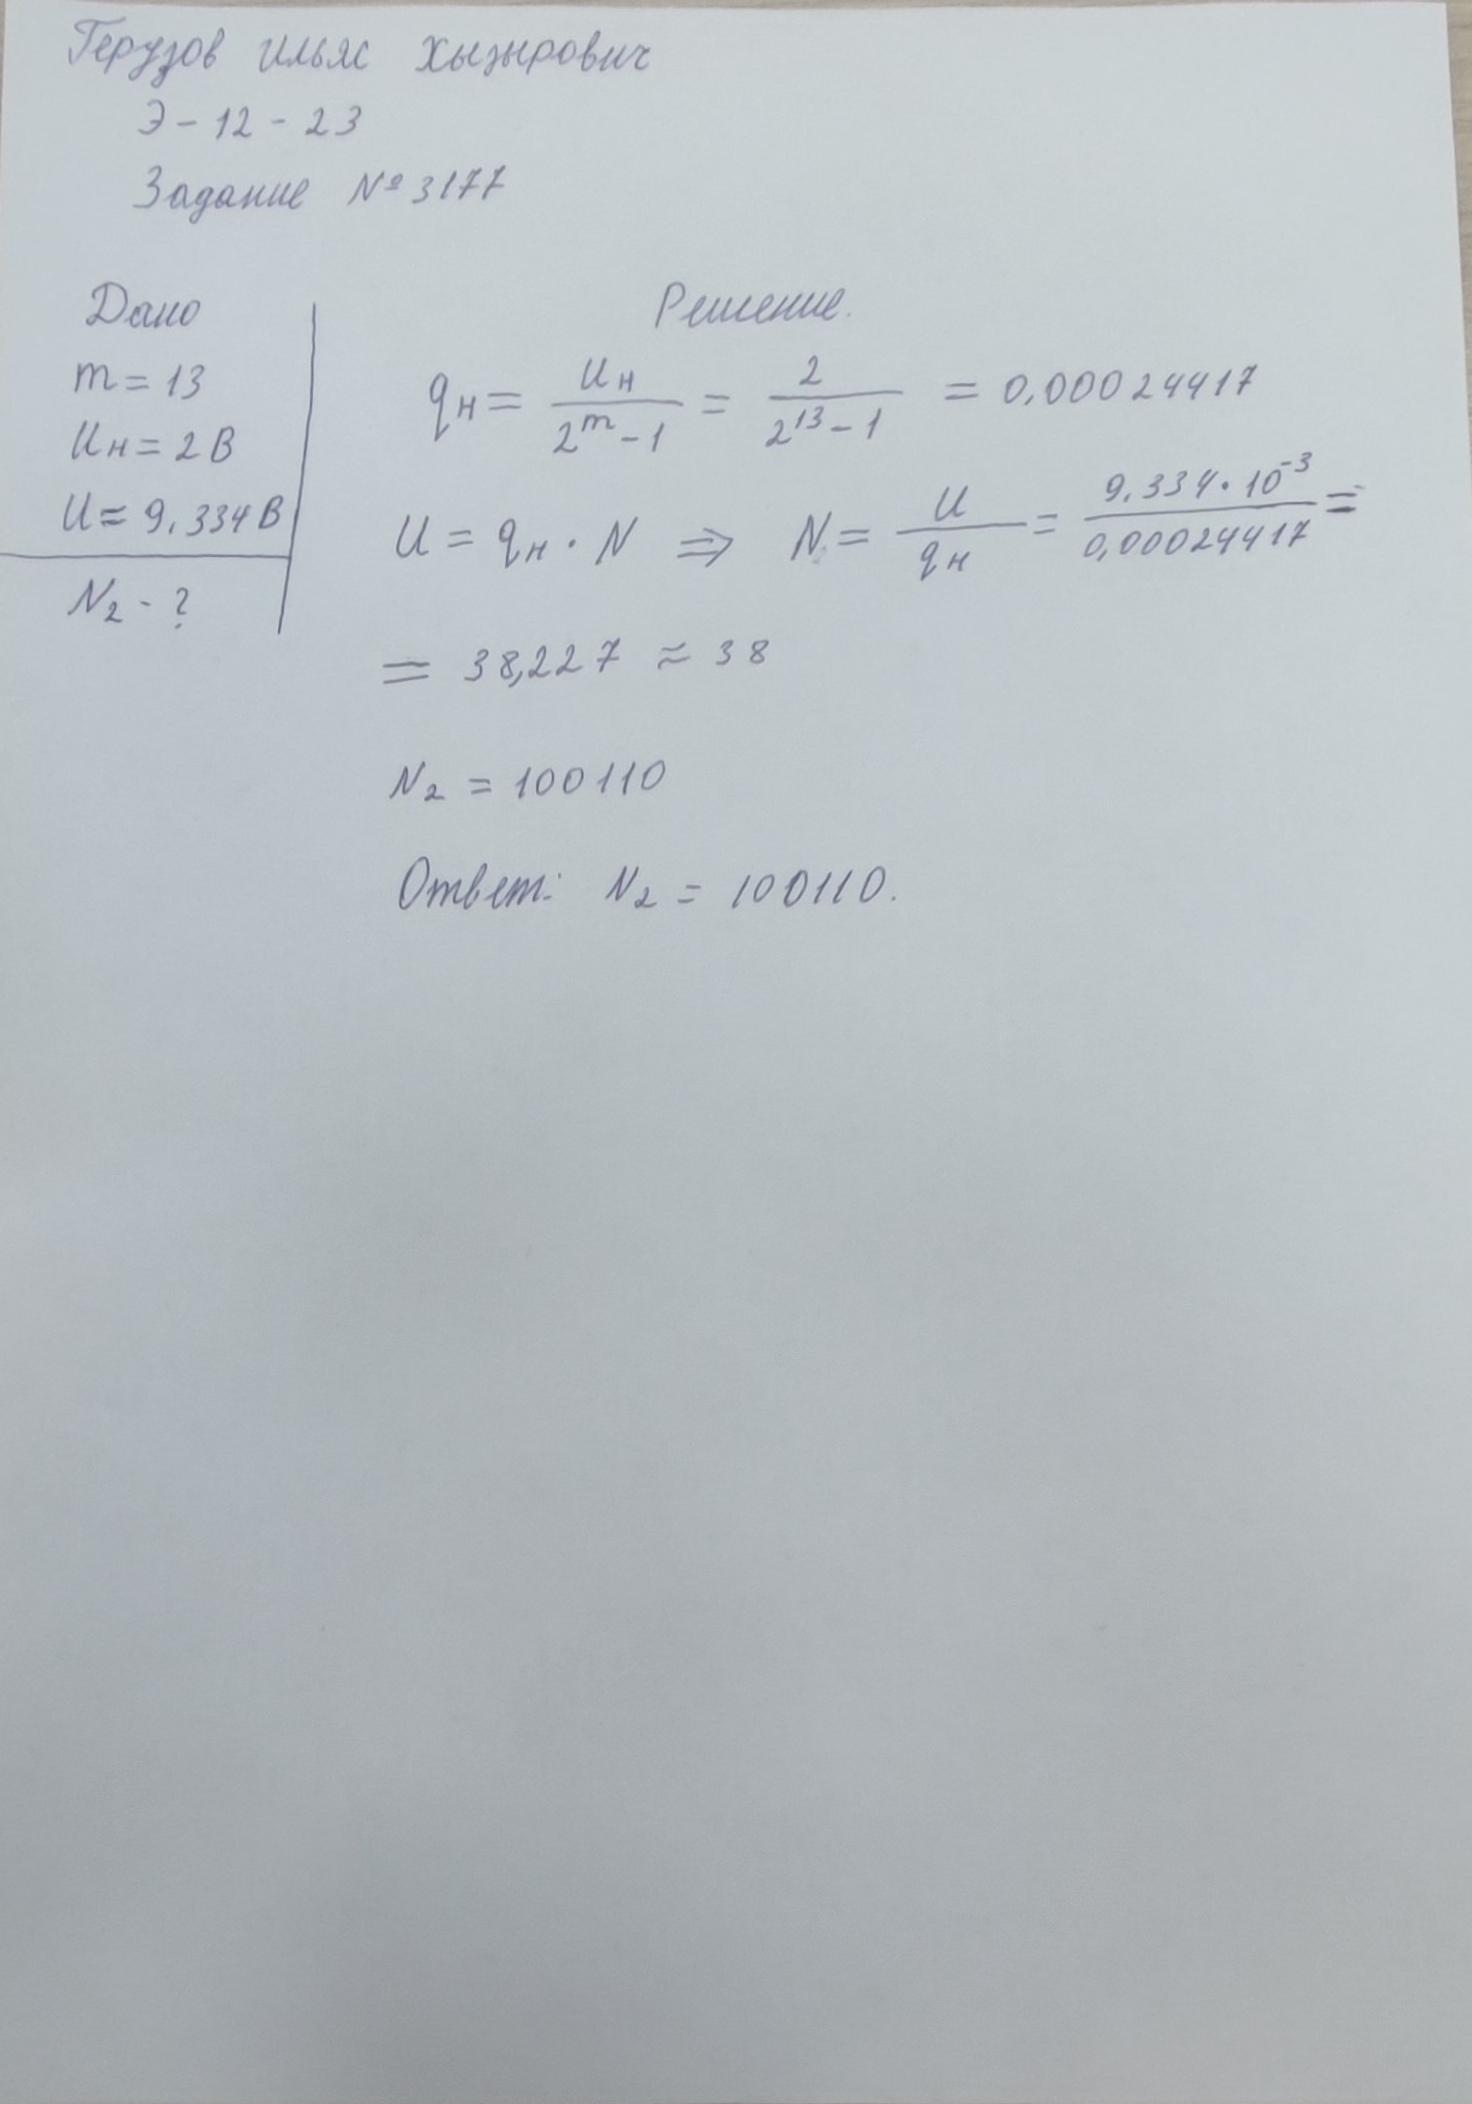 Герузов Ильяс Хызырович
Э-12-23
Задание № 3177
Дано
m = 13
Uн = 2 В
U = 9,334 В
N₂ - ?
Решение.
qн = Uн / (2^m - 1) = 2 / (2^13 - 1) = 0,00024417
U = qн · N ⇒ N = U / qн = 9,334 · 10^-3 / 0,00024417 =
= 38,227 ≈ 38
N₂ = 100110
Ответ: N₂ = 100110.